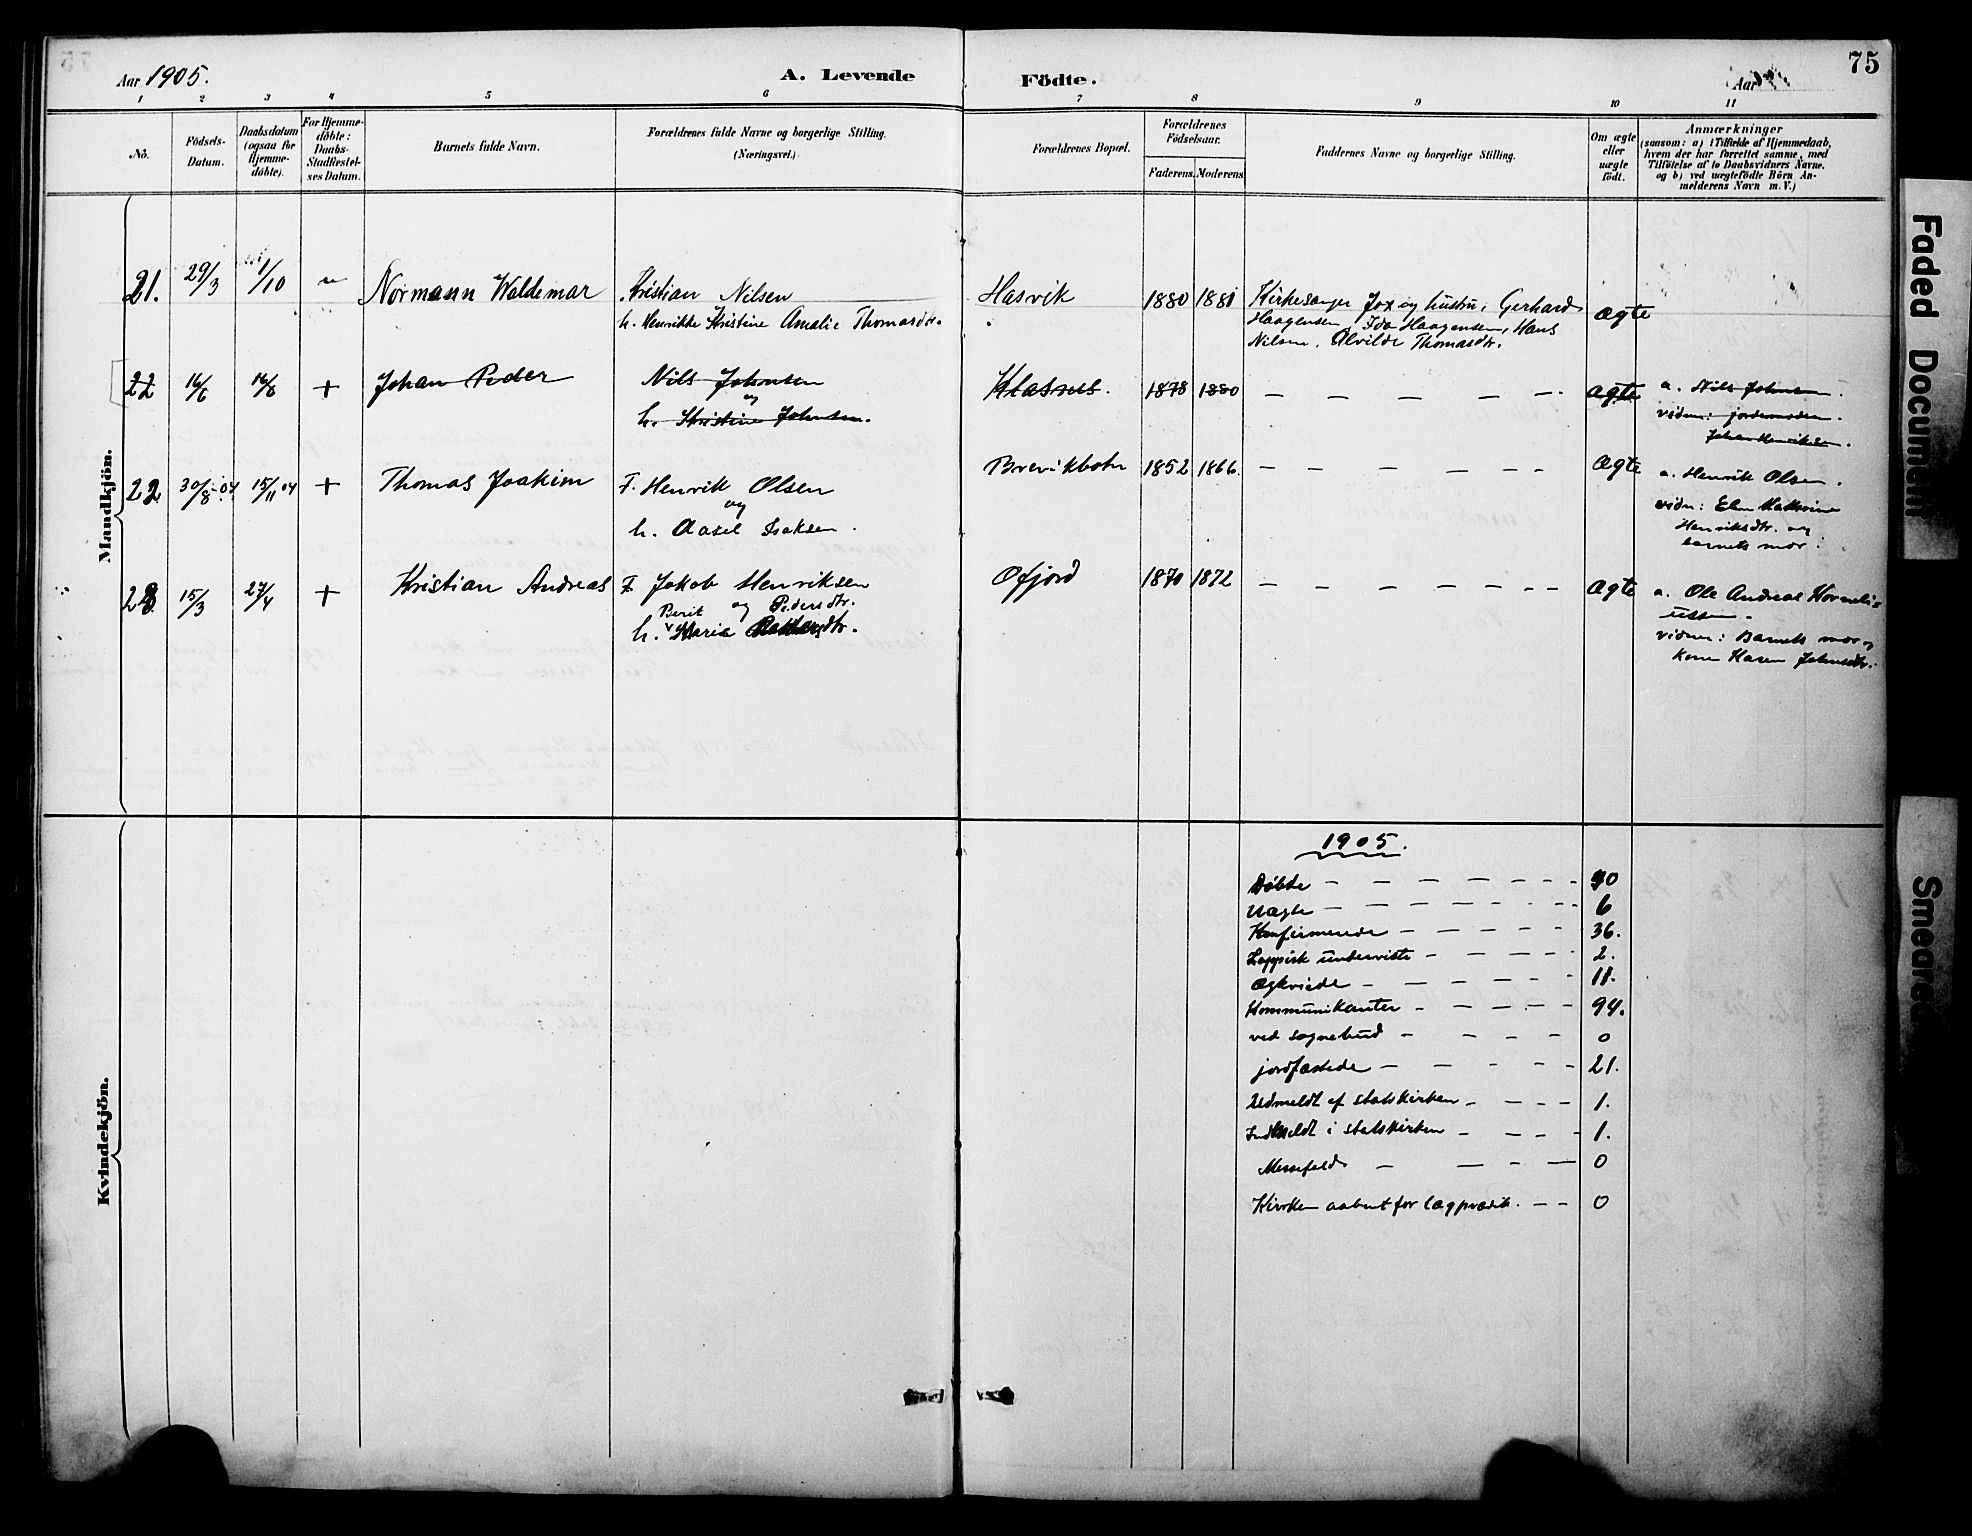 75
Aar 1905.
A. Levende Födte.
Aar
1 2 3 4 5 6 7 8 9 10 11
No.
Födsels-
Datum.
Daabsdatum
(ogsaa for
Hjemme-
döbte).
For Hjemme-
döbte:
Daabs-
Stadfestel-
ses Datum.
Barnets fulde Navn.
Forældrenes fulde Navne og borgerlige Stilling.
(Næringsvei.)
Forældrenes Bopæl.
Forældrenes
Födselsaar.
Faderens. Moderens.
Faddernes Navne og borgerlige Stilling.
Om ægte
eller
uægte
födt.
Anmærkninger
(saasom: a) i Tilfælde af Hjemmedaab,
hvem der har forrettet samme, med
Tilföielse af to Daabsvidners Navne.
og b) ved uægtefödte Börn An-
melderens Navn m. V.)
Mandkjön.
21. 29/3 1/10 Normann Waldemar
Kristian Nilsen
h. Henrikke Kristine Amalie Thomasdtr.
Hasvik 1880 1881
Kirkesanger Fox og hustru, Gerhard
Haagensen, Ida Haagensen, Hans
Nilsen, Alvilde Thomasdtr.
ægte
22 16/6 16/6 + Johan Peder
Nils Johnsen
og
h. Kristine Johnsen.
1878 1880 — — — — — ægte
a. Nils Johnsen.
vidner: jordemoderen.
Johan Henriksen.
22. 30/8-04 15/11 04 + Thomas Joakim
F. Henrik Olsen
og
h. Aasel Isaksen.
Brevikbotn 1852 1866. — — — — — — ægte
a. Henrik Olsen.
vidn: Elen Kathrine
Henriksdtr. og
barnets mor.
23. 15/3 27/4 + Kristian Andreas
F. Jakob Henriksen
og
Berit Pedersdtr.
h. Marie
Øfjord 1870 1872 — — — — — — — ægte
a. Ole Andreas Korneli=
ussen.
vidner: Barnets mor og
kone Karen Johnsdtr.
Kvindekjön.
1905.
Døbte — — — — — — - 90
Uægte — — — — — - - 6
Konfirmerede — — — — — - 36.
Lappisk underviste — — — — - 2.
Ægteviede — — — — — - 11.
Kommunikanter — — — — — - 94.
ved sognebud — — — — 0
jordfæstede — — — — - 21.
Udmeldt af statskirken — — — — 1.
Indmeldt i statskirken — — — - 1.
Messefald — — - — 0
Kirken aabnet for lægprædik. — — 0
Faded Document
Smeared